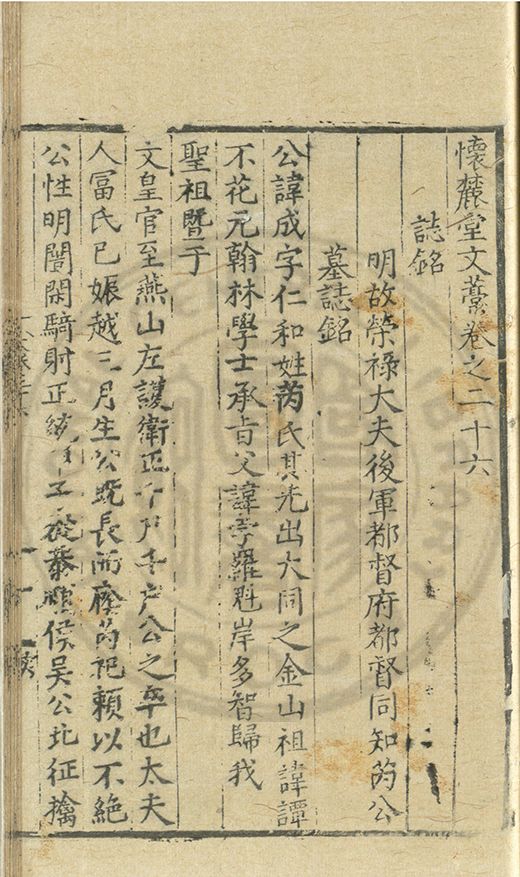 懷麓堂文藁卷之二十六
誌銘
明故榮祿大夫後軍都督府都督同知芮公
墓誌銘
公諱成字仁和姓芮氏其先出大同之金山祖諱譚
不花元翰林學士承旨父諱孛羅魁岸多智歸我
聖祖暨于
文皇官至燕山左護衛正千戶千戶公之卒也太夫
人冨氏已娠越三月生公旣長而廕芮祀賴以不絕
公性明闓閑騎射正統 從恭順侯吳公北征擒